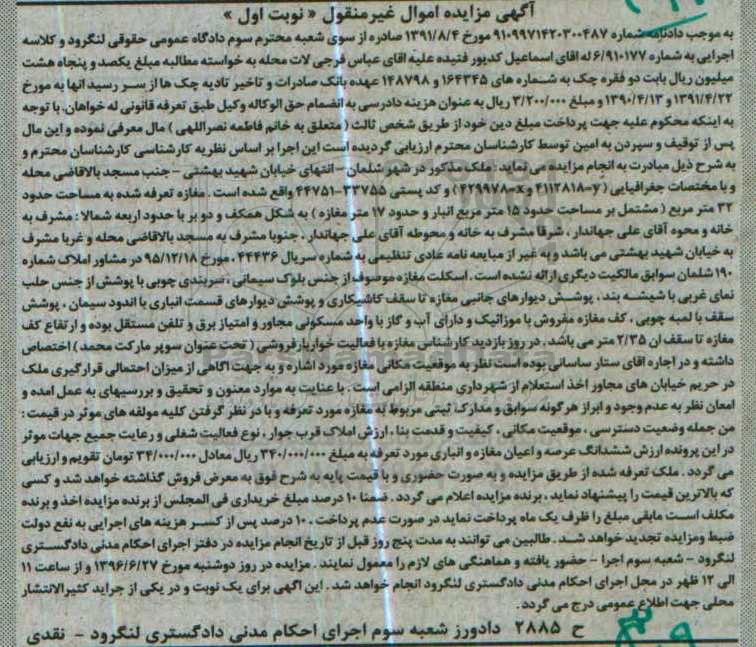 آگهی مزایده اموال غیرمنقول « نوبت اول »
به موجب دادنامه شماره ۹۱۰۹۹۷۱۴۲۰۳۰۰۴۸۷ مورخ ۱۳۹۱/۸/۴ صادره از سوی شعبه محترم سوم دادگاه عمومی حقوقی لنگرود و کلاسه
اجرایی به شماره ۶/۹۱۰۱۷۷ له اقای اسماعیل کدیور فتیده علیه اقای عباس فرجی لات محله به خواسته مطالبه مبلغ یکصد و پنجاه هشت
میلیون ریال بابت دو فقره چک به شماره های ۱۶۴۳۴۵ و ۱۴۸۷۹۸ عهده بانک صادرات و تاخیر تادیه چک ها از سر رسید انها به مورخ
۱۳۹۱/۴/۲۲ و ۱۳۹۰/۴/۱۳ و مبلغ ۳/۲۰۰/۰۰۰ ریال به عنوان هزینه دادرسی به انضمام حق الوکاله وکیل طبق تعرفه قانونی له خواهان، با توجه
به اینکه محکوم علیه جهت پرداخت مبلغ دین خود از طریق شخص ثالث ( متعلق به خانم فاطمه نصراللهی ) مال معرفی نموده و این مال
پس از توقیف و سپردن به امین توسط کارشناسان محترم ارزیابی گردیده است این اجرا بر اساس نظریه کارشناسی کارشناسان محترم و
به شرح ذیل مبادرت به انجام مزایده می نماید : ملک مذکور در شهر شلمان – انتهای خیابان شهید بهشتی – جنب مسجد بالاقاضی محله
و با مختصات جغرافیایی ( ۴۱۱۳۸۱۸=y و ۴۲۹۹۷۸=x ) و کد پستی ۳۳۷۵۵–۴۴۷۵۱ واقع شده است . مغازه تعرفه شده به مساحت حدود
۳۲ متر مربع ( مشتمل بر مساحت حدود ۱۵ متر مربع انبار و حدود ۱۷ متر مغازه ) به شکل همکف و دو بر با حدود اربعه شمالا : مشرف به
خانه و محوه آقای علی جهاندار ، شرقا مشرف به خانه و محوطه آقای علی جهاندار ، جنوبا مشرف به مسجد بالاقاضی محله و غربا مشرف
به خیابان شهید بهشتی می باشد و به غیر از مبایعه نامه عادی تنظیمی به شماره سریال ۴۴۴۳۶ ، مورخ ۹۵/۱۲/۱۸ در مشاور املاک شماره
۱۹۰ شلمان سوابق مالکیت دیگری ارائه نشده است . اسکلت مغازه موصوف از جنس بلوک سیمانی ، سربندی چوبی با پوشش از جنس حلب
نمای غربی با شیشه بند ، پوشش دیوارهای جانبی مغازه تا سقف کاشیکاری و پوشش دیوارهای قسمت انباری با اندود سیمان ، پوشش
سقف با لمبه چوبی ، کف مغازه مفروش با موزائیک و دارای آب و گاز با واحد مسکونی مجاور و امتیاز برق و تلفن مستقل بوده و ارتفاع کف
مغازه تا سقف ان ۲/۳۵ متر می باشد . در روز بازدید کارشناس مغازه با فعالیت خواربارفروشی ( تحت عنوان سوپر مارکت محمد ) اختصاص
داشته و در اجاره اقای ستار ساسانی بوده است نظر به موقعیت مکانی مغازه مورد اشاره و به جهت اگاهی از میزان احتمالی قرارگیری ملک
در حریم خیابان های مجاور اخذ استعلام از شهرداری منطقه الزامی است . با عنایت به موارد معنون و تحقیق و بررسیهای به عمل امده و
امعان نظر به عدم وجود و ابراز هرگونه سوابق و مدارک ثبتی مربوط به مغازه مورد تعرفه و با در نظر گرفتن کلیه مولفه های موثر در قیمت :
من جمله وضعیت دسترسی ، موقعیت مکانی ، کیفیت و قدمت بنا ، ارزش املاک قرب جوار ، نوع فعالیت شغلی و رعایت جمیع جهات موثر
در این پرونده ارزش ششدانگ عرصه و اعیان مغازه و انباری مورد تعرفه به مبلغ ۳۴۰/۰۰۰/۰۰۰ ریال معادل ۳۴/۰۰۰/۰۰۰ تومان تقویم و ارزیابی
می گردد . ملک تعرفه شده از طریق مزایده و به صورت حضوری و با قیمت پایه به شرح فوق به معرض فروش گذاشته خواهد شد و کسی
که بالاترین قیمت را پیشنهاد نماید ، برنده مزایده اعلام می گردد . ضمنا ۱۰ درصد مبلغ خریداری فی المجلس از برنده مزایده اخذ و برنده
مکلف است مابقی مبلغ را ظرف یک ماه پرداخت نماید در صورت عدم پرداخت ، ۱۰ درصد پس از کسر هزینه های اجرایی به نفع دولت
ضبط ومزایده تجدید خواهد شد . طالبین می توانند به مدت پنج روز قبل از تاریخ انجام مزایده در دفتر اجرای احکام مدنی دادگستری
لنگرود – شعبه سوم اجرا – حضور یافته و هماهنگی های لازم را معمول نمایند . مزایده در روز دوشنبه مورخ ۱۳۹۶/۶/۲۷ و از ساعت ۱۱
الی ۱۲ ظهر در محل اجرای احکام مدنی دادگستری لنگرود انجام خواهد شد . این اگهی برای یک نوبت و در یکی از جراید کثیرالانتشار
محلی جهت اطلاع عمومی درج می گردد .
ح ۲۸۸۵ دادورز شعبه سوم اجرای احکام مدنی دادگستری لنگرود – نقدی